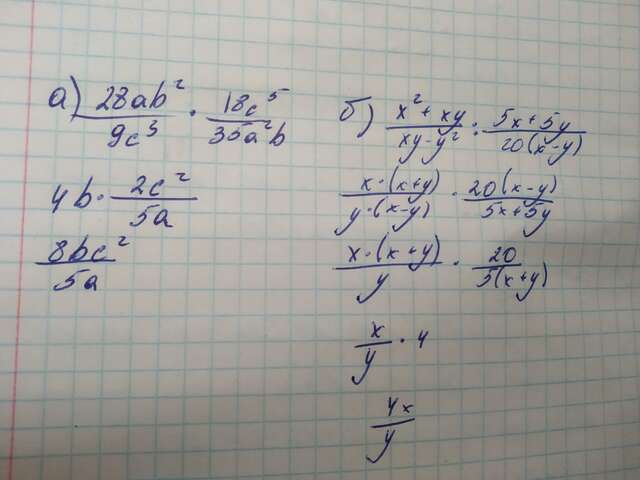 а) 28ab²/9c³ · 18c⁵/35a²b
4b · 2c²/5a
8bc²/5a
б) x² + xy/xy - y² : 5x + 5y/20(x-y)
x·(x+y)/y·(x-y) · 20(x-y)/5x+5y
x·(x+y)/y · 20/5(x+y)
x/y · 4
4x/y